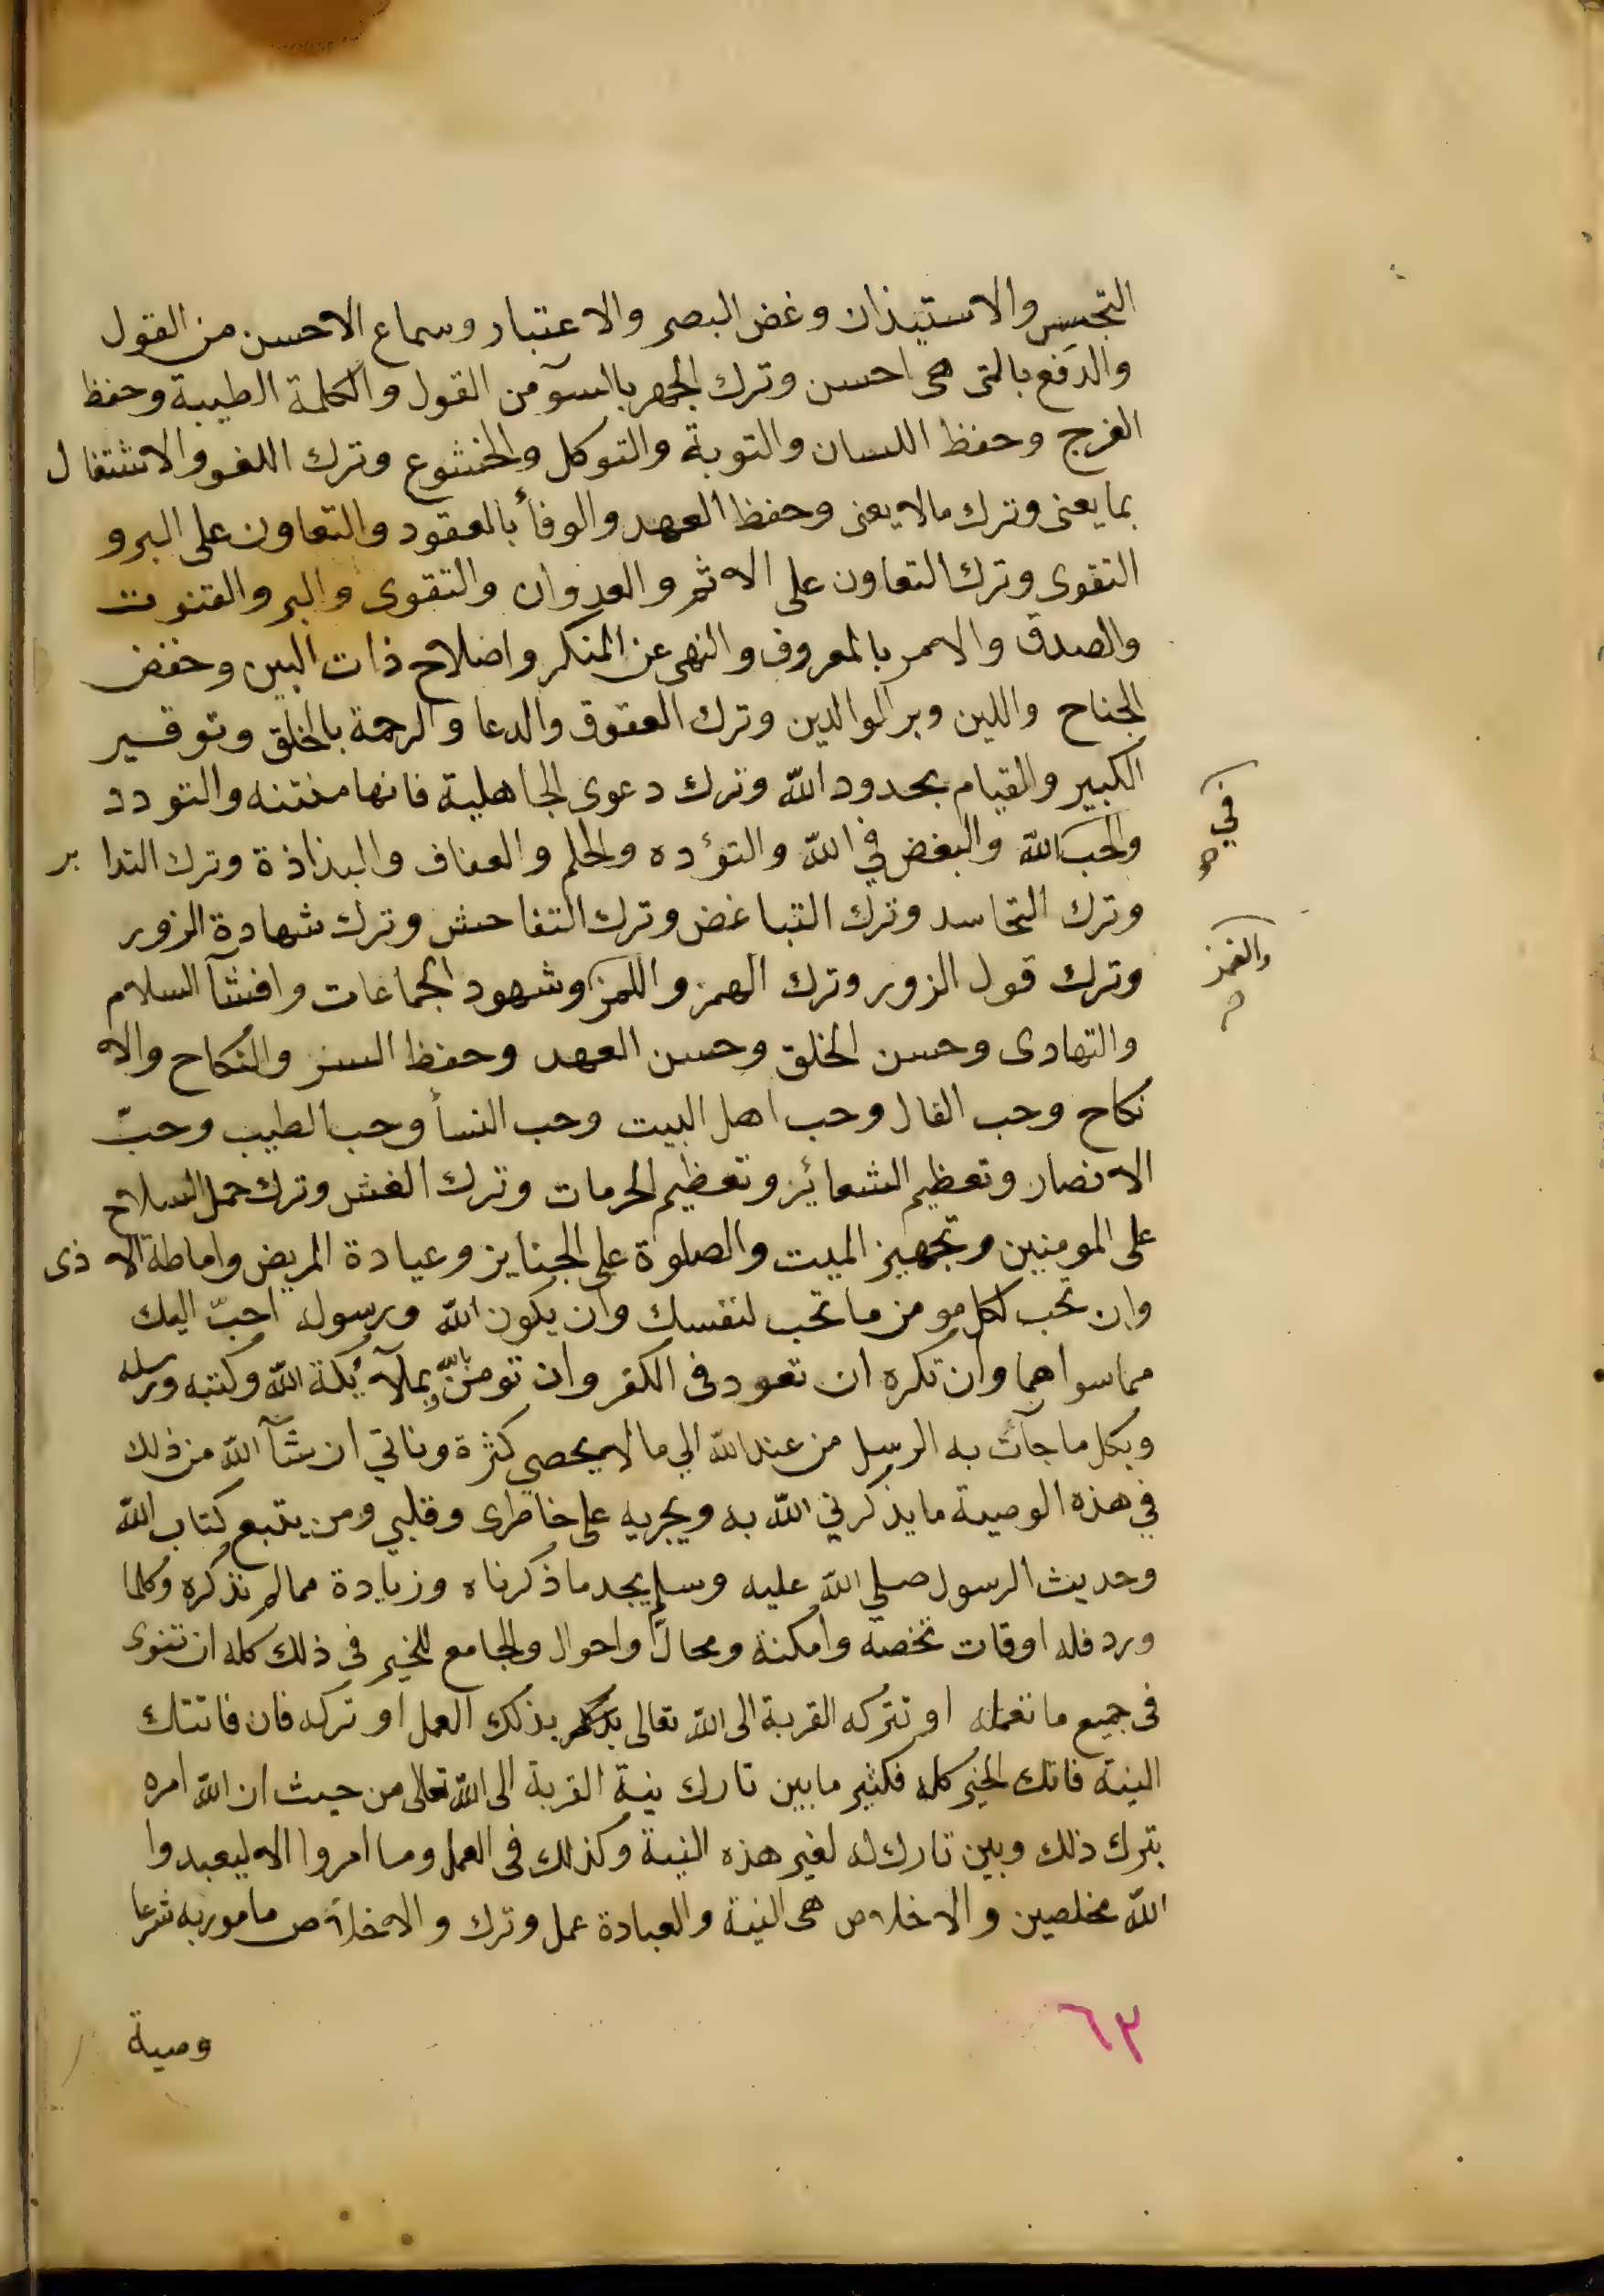 التجسس والاستيذان وغض البصر والاعتبار وسماع الاحسن من القول
والدفع بالتى هى احسن وترك الجهر بالسوآ من القول والكلمة الطيبة وحفظ
الفرج وحفظ اللسان والتوبة والتوكل والخشوع وترك اللغو والاشتغال
بما يعنى وترك مالا يعنى وحفظ العهد والوفأ بالعقود والتعاون على البر و
التقوى وترك التعاون على الاثم والعدوان والتقوى والبر والقنوت
والصدق والامر بالمعروف والنهى عن المنكر واصلاح ذات البين وخفض
الجناح واللين وبر الوالدين وترك العقوق والدعا والرحمة بالخلق وتوقير
الكبير والقيام بحدود الله وترك دعوى الجاهلية فانها منتنه والتودد
والحب الله والبغض في الله والتؤده والحلم والعفاف والبذاذة وترك التدابر
في
وترك التحاسد وترك التباغض وترك التفاحش وترك شهادة الزور
وترك قول الزور وترك الهمز واللمز وشهود الجماعات وافشآ السلام
والغمز
والتهادى وحسن الخلق وحسن العهد وحفظ السر والنكاح والا
نكاح وحب الفال وحب اهل البيت وحب النسأ وحب الطيب وحبّ
الانصار وتعظيم الشعائر وتعظيم الحرمات وترك الغش وترك حمل السلاح
على المومنين وتجهيز الميت والصلوة على الجنايز وعيادة المريض واماطة الاذى
وان تحب لكل مومن ما تحب لنفسك وان يكون الله ورسوله احبّ اليك
مما سواهما وان تكره ان تعود فى الكفر وان تومن بالله وبملآئكة الله وكتبه ورسله
وبكل ما جآت به الرسل من عند الله الي ما لا يحصي كثرة وناتي ان شآ الله من ذلك
في هذه الوصية ما يذكرني الله به ويجريه على خاطرى وقلبي ومن يتبع كتاب الله
وحديث الرسول صلي الله عليه وسلم يجد ما ذكرناه وزيادة مما لم نذكره وكلما
ورد فله اوقات تخصه وامكنة ومحالّ واحوال والجامع للخير فى ذلك كله ان تنوى
فى جميع ما تعمله او تتركه القربة الى الله تعالى بذلك العمل او تركه فان فاتتك
النية فاتك الخير كله فكثير ما بين تارك بنية القربة الى الله تعالى من حيث ان الله امره
بترك ذلك وبين تارك له لغير هذه النية وكذلك فى العمل وما امروا الا ليعبدوا
الله مخلصين والاخلاص هى النية والعبادة عمل وترك والاخلاص مامور به شرعا
وصية
٦٣